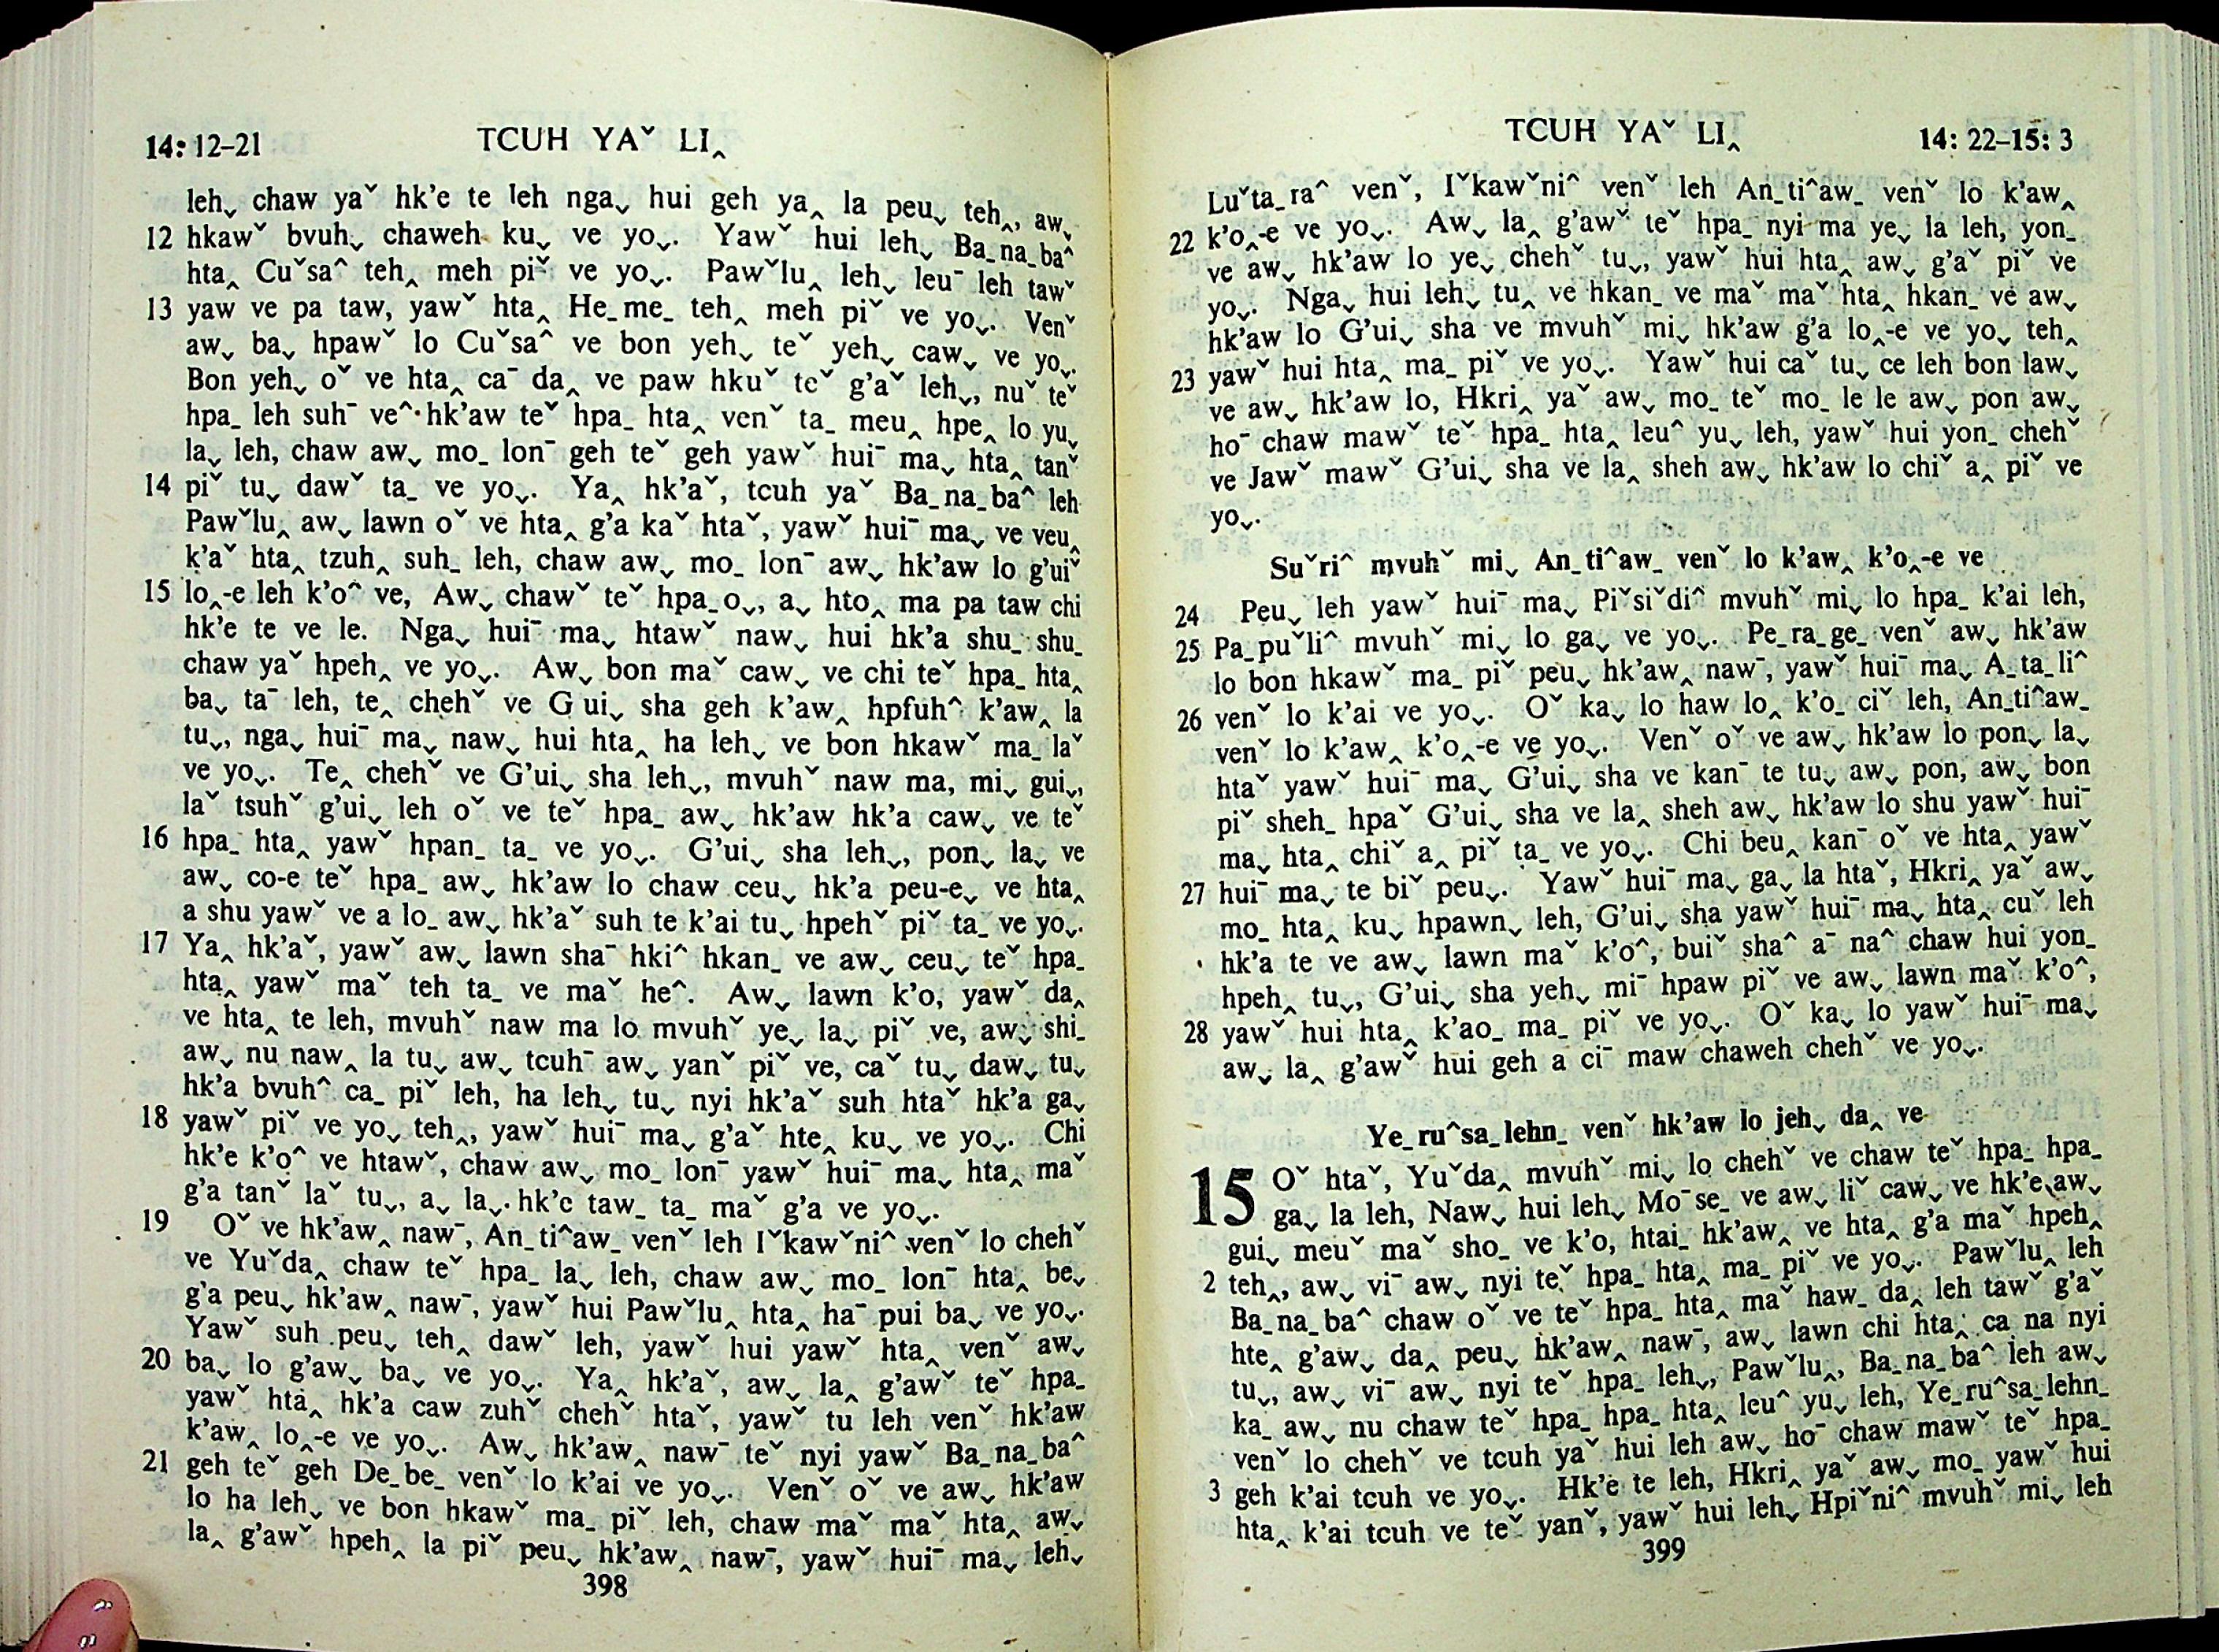 14: 12–21 TCUH YAˇ LI‸
lehˬ chaw yaˇ hk’e te leh ngaˬ hui geh ya‸ la peuˬ teh‸, awˬ
12 hkawˇ bvuhˬ chaweh kuˬ ve yoˬ. Yawˇ hui lehˬ Baˍnaˍbaˆ
hta‸ Cuˇsaˆ teh‸ meh piˇ ve yoˬ. Pawˇlu‸ lehˬ leuˉ leh tawˇ
13 yaw ve pa taw, yawˇ hta‸ Heˍmeˍ teh‸ meh piˇ ve yoˬ. Venˇ
awˬ baˬ hpawˇ lo Cuˇsaˆ ve bon yehˬ teˇ yehˬ cawˬ ve yoˬ.
Bon yehˬ oˇ ve hta‸ caˉ da‸ ve paw hkuˇ teˇ g’aˇ lehˬ, nuˇ teˇ
hpaˍ leh suhˉ veˆ hk’aw teˇ hpaˍ hta‸ venˇ taˍ meu‸ hpe‸ lo yuˬ
laˬ leh, chaw awˬ moˍ lonˉ geh teˇ geh yawˇ huiˉ maˬ hta‸ tanˇ
14 piˇ tuˬ dawˇ taˍ ve yoˬ. Ya‸ hk’aˇ, tcuh yaˇ Baˍnaˍbaˆ leh
Pawˇlu‸ awˬ lawn oˇ ve hta‸ g’a kaˇ htaˇ, yawˇ huiˉ maˬ ve veu‸
k’aˇ hta‸ tzuh‸ suhˍ leh, chaw awˬ moˍ lonˉ awˬ hk’aw lo g’uiˇ
15 lo‸-e leh k’oˆ ve, Awˬ chawˇ teˇ hpaˍoˬ, aˬ hto‸ ma pa taw chi
hk’e te ve le. Ngaˬ huiˉ maˬ htawˇ nawˬ hui hk’a shuˍ shuˍ
chaw yaˇ hpeh‸ ve yoˬ. Awˬ bon maˇ cawˬ ve chi teˇ hpaˍ hta‸
baˬ taˉ leh, te‸ chehˇ ve G’uiˬ sha geh k’aw‸ hpfuhˆ k’aw‸ la
tuˬ, ngaˬ huiˉ maˬ nawˬ hui hta‸ ha lehˬ ve bon hkawˇ maˍ laˇ
ve yoˬ. Te‸ chehˇ ve G’uiˬ sha lehˬ, mvuhˇ naw ma, miˬ guiˬ,
laˇ tsuhˇ g’uiˬ leh oˇ ve teˇ hpaˍ awˬ hk’aw hk’a cawˬ ve teˇ
16 hpaˍ hta‸ yawˇ hpanˍ taˍ ve yoˬ. G’uiˬ sha lehˬ, ponˬ laˬ ve
awˬ co-e teˇ hpaˍ awˬ hk’aw lo chaw ceuˬ hk’a peu-eˬ ve hta‸
a shu yawˇ ve a loˍ awˬ hk’aˇ suh te k’ai tuˬ hpehˇ piˇ taˍ ve yoˬ.
17 Ya‸ hk’aˇ, yawˇ awˬ lawn shaˉ hkiˆ hkanˍ ve awˬ ceuˬ teˇ hpaˍ
hta‸ yawˇ maˇ teh taˍ ve maˇ heˆ. Awˬ lawn k’o, yawˇ da‸
ve hta‸ te leh, mvuhˇ naw ma lo mvuhˇ yeˬ laˬ piˇ ve, awˬ shiˍ
awˬ nu naw‸ la tuˬ awˬ tcuhˉ awˬ yanˇ piˇ ve, caˇ tuˬ dawˬ tuˬ
hk’a bvuhˆ caˍ piˇ leh, ha lehˬ tuˬ nyi hk’aˇ suh htaˇ hk’a gaˬ
18 yawˇ piˇ ve yoˬ teh‸, yawˇ huiˉ maˬ g’aˇ hte‸ kuˬ ve yoˬ. Chi
hk’e k’oˆ ve htawˇ, chaw awˬ moˍ lonˉ yawˇ huiˉ maˬ hta‸ maˇ
g’a tanˇ laˇ tuˬ, aˬ laˬ hk’e tawˍ taˍ maˇ g’a ve yoˬ.
19 Oˇ ve hk’aw‸ nawˉ, Anˍtiˆawˍ venˇ leh Iˇkawˇniˆ venˇ lo chehˇ
ve Yuˇda‸ chaw teˇ hpaˍ laˬ leh, chaw awˬ moˍ lonˉ hta‸ beˬ
g’a peuˬ hk’aw‸ nawˉ, yawˇ hui Pawˇlu‸ hta‸ haˉ pui baˬ ve yoˬ.
Yawˇ suh peuˬ teh‸ dawˇ leh, yawˇ hui yawˇ hta‸ venˇ awˬ
20 baˬ lo g’awˬ baˬ ve yoˬ. Ya‸ hk’aˇ, awˬ la‸ g’awˇ teˇ hpaˍ
yawˇ hta‸ hk’a caw zuhˇ chehˇ htaˇ, yawˇ tu leh venˇ hk’aw
k’aw‸ lo‸-e ve yoˬ. Awˬ hk’aw‸ nawˉ teˇ nyi yawˇ Baˍnaˍbaˆ
21 geh teˇ geh Deˍbeˍ venˇ lo k’ai ve yoˬ. Venˇ oˇ ve awˬ hk’aw
lo ha lehˬ ve bon hkawˇ maˍ piˇ leh, chaw maˇ maˇ hta‸ awˬ
la‸ g’awˇ hpeh‸ la piˇ peuˬ hk’aw‸ nawˉ, yawˇ huiˉ maˬ lehˬ
398
TCUH YAˇ LI‸ 14: 22–15: 3
Luˇtaˍraˆ venˇ, Iˇkawˇniˆ venˇ leh Anˍtiˆawˍ venˇ lo k’aw‸
22 k’o‸-e ve yoˬ. Awˬ la‸ g’awˇ teˇ hpaˍ nyi ma yeˬ la leh, yonˍ
ve awˬ hk’aw lo yeˬ chehˇ tuˬ, yawˇ hui hta‸ awˬ g’aˇ piˇ ve
yoˬ. Ngaˬ hui lehˬ tu‸ ve hkanˍ ve maˇ maˇ hta‸ hkanˍ ve awˬ
hk’aw lo G’uiˬ sha ve mvuhˇ miˬ hk’aw g’a lo‸-e ve yoˬ teh‸
23 yawˇ hui hta‸ maˍ piˇ ve yoˬ. Yawˇ hui caˇ tuˬ ce leh bon lawˬ
ve awˬ hk’aw lo, Hkri‸ yaˇ awˬ moˍ teˇ moˍ le le awˬ pon awˬ
hoˉ chaw mawˇ teˇ hpaˍ hta‸ leuˆ yuˬ leh, yawˇ hui yonˍ chehˇ
ve Jawˇ mawˇ G’uiˬ sha ve la‸ sheh awˬ hk’aw lo chiˇ a‸ piˇ ve
yoˬ.
Suˇriˆ mvuhˇ miˬ Anˍtiˆawˍ venˇ lo k’aw‸ k’o‸-e ve
24 Peuˬ leh yawˇ huiˉ maˬ Piˇsiˇdiˆ mvuhˇ miˬ lo hpaˍ k’ai leh,
25 Paˍpuˇliˆ mvuhˇ miˬ lo gaˬ ve yoˬ. Peˍraˍgeˍ venˇ awˬ hk’aw
lo bon hkawˇ maˍ piˇ peuˬ hk’aw‸ nawˉ, yawˇ huiˉ maˬ Aˍtaˍliˆ
26 venˇ lo k’ai ve yoˬ. Oˇ kaˬ lo haw lo‸ k’oˍ ciˇ leh, Anˍtiˆawˍ
venˇ lo k’aw‸ k’o‸-e ve yoˬ. Venˇ oˇ ve awˬ hk’aw lo ponˬ laˬ
htaˇ yawˇ huiˉ maˬ G’uiˬ sha ve kanˉ te tuˬ awˬ pon, awˬ bon
piˇ shehˍ hpaˇ G’uiˬ sha ve la‸ sheh awˬ hk’aw lo shu yawˇ huiˉ
maˬ hta‸ chiˇ a‸ piˇ taˍ ve yoˬ. Chi beu‸ kanˉ oˇ ve hta‸ yawˇ
27 huiˉ maˬ te biˇ peuˬ. Yawˇ huiˉ maˬ gaˬ la htaˇ, Hkri‸ yaˇ awˬ
moˍ hta‸ kuˬ hpawnˬ leh, G’uiˬ sha yawˇ huiˉ maˬ hta‸ cuˇ leh
hk’a te ve awˬ lawn maˇ k’oˆ, buiˇ shaˆ aˉ naˆ chaw hui yonˍ
hpeh‸ tuˬ, G’uiˬ sha yehˬ miˉ hpaw piˇ ve awˬ lawn maˇ k’oˆ,
28 yawˇ hui hta‸ k’aoˍ maˍ piˇ ve yoˬ. Oˇ kaˬ lo yawˇ huiˉ maˬ
awˬ la‸ g’awˇ hui geh a ciˉ maw chaweh chehˇ ve yoˬ.
Yeˍruˆsaˍlehnˍ venˇ hk’aw lo jehˬ da‸ ve
15 Oˇ htaˇ, Yuˇda‸ mvuhˇ miˬ lo chehˇ ve chaw teˇ hpaˍ hpaˍ
gaˬ la leh, Nawˬ hui lehˬ Moˉseˍ ve awˬ liˇ cawˬ ve hk’e awˬ
guiˬ meuˇ maˇ shoˍ ve k’o, htaiˍ hk’aw‸ ve hta‸ g’a maˇ hpeh‸
2 teh‸, awˬ viˉ awˬ nyi teˇ hpaˍ hta‸ maˍ piˇ ve yoˬ. Pawˇlu‸ leh
Baˍnaˍbaˆ chaw oˇ ve teˇ hpaˍ hta‸ maˇ hawˍ da‸ leh tawˇ g’aˇ
hte‸ g’awˬ da‸ peuˬ hk’aw‸ nawˉ, awˬ lawn chi hta‸ ca na nyi
tuˬ, awˬ viˉ awˬ nyi teˇ hpaˍ lehˬ, Pawˇlu‸, Baˍnaˍbaˆ leh awˬ
kaˍ awˬ nu chaw teˇ hpaˍ hpaˍ hta‸ leuˆ yuˬ leh, Yeˍruˆsaˍlehnˍ
venˇ lo chehˇ ve tcuh yaˇ hui leh awˬ hoˉ chaw mawˇ teˇ hpaˍ
3 geh k’ai tcuh ve yoˬ. Hk’e te leh, Hkri‸ yaˇ awˬ moˍ yawˇ hui
hta‸ k’ai tcuh ve teˇ yanˇ, yawˇ hui lehˬ Hpiˇniˆ mvuhˇ miˬ leh
399